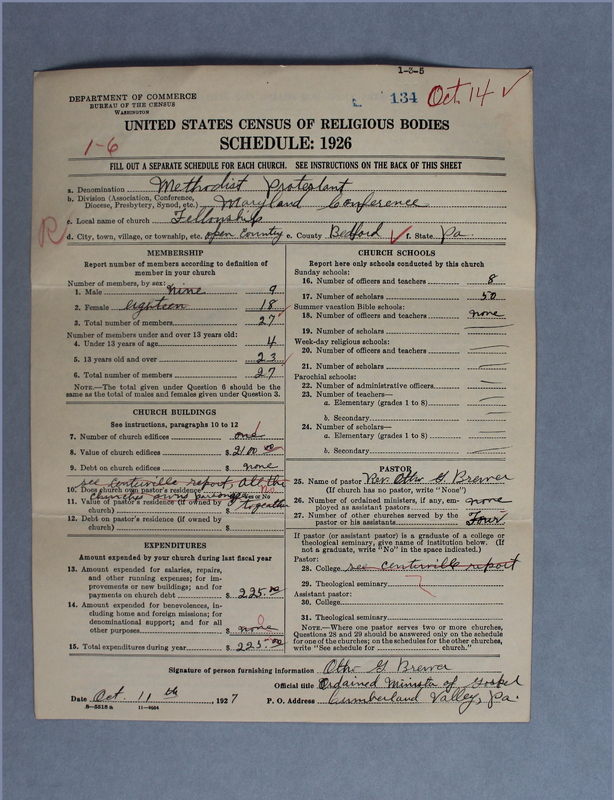 1-3-5
DEPARTMENT OF COMMERCE
BUREAU OF THE CENSUS
WASHINGTON
134 Oct. 14 ✓
UNITED STATES CENSUS OF RELIGIOUS BODIES
1-6
SCHEDULE: 1926
FILL OUT A SEPARATE SCHEDULE FOR EACH CHURCH. SEE INSTRUCTIONS ON THE BACK OF THIS SHEET
a. Denomination Methodist Protestant
b. Division (Association, Conference,
Diocese, Presbytery, Synod, etc.) Maryland Conference
c. Local name of church Fellowship
R
d. City, town, village, or township, etc. open Country e. County Bedford ✓ f. State Pa.
MEMBERSHIP
Report number of members according to definition of
member in your church
Number of members, by sex:
1. Male nine 9
2. Female eighteen 18
3. Total number of members 27
Number of members under and over 13 years old:
4. Under 13 years of age 4
5. 13 years old and over 23
6. Total number of members 27
NOTE.—The total given under Question 6 should be the
same as the total of males and females given under Question 3.
CHURCH BUILDINGS
See instructions, paragraphs 10 to 12
7. Number of church edifices one
8. Value of church edifices $ 2100 00
9. Debt on church edifices $ none
see Centerville report, all the
10. Does church own pastor's residence No Yes or No
churches owns parsonage
11. Value of pastor's residence (if owned by
church) $ together
12. Debt on pastor's residence (if owned by
church) $
EXPENDITURES
Amount expended by your church during last fiscal year
13. Amount expended for salaries, repairs,
and other running expenses; for im-
provements or new buildings; and for
payments on church debt $ 225.00
14. Amount expended for benevolences, in-
cluding home and foreign missions; for
denominational support; and for all
other purposes $ none
15. Total expenditures during year $ 225.00
CHURCH SCHOOLS
Report here only schools conducted by this church
Sunday schools:
16. Number of officers and teachers 8
17. Number of scholars 50
Summer vacation Bible schools:
18. Number of officers and teachers none
19. Number of scholars
Week-day religious schools:
20. Number of officers and teachers
21. Number of scholars
Parochial schools:
22. Number of administrative officers
23. Number of teachers—
a. Elementary (grades 1 to 8)
b. Secondary
24. Number of scholars—
a. Elementary (grades 1 to 8)
b. Secondary
PASTOR
25. Name of pastor Rev. Otho G. Brewer
(If church has no pastor, write "None")
26. Number of ordained ministers, if any, em-
ployed as assistant pastors none
27. Number of other churches served by the
pastor or his assistants Four
If pastor (or assistant pastor) is a graduate of a college or
theological seminary, give name of institution below. (If
not a graduate, write "No" in the space indicated.)
Pastor:
28. College see Centerville report
29. Theological seminary
Assistant pastor:
30. College
31. Theological seminary
NOTE.—Where one pastor serves two or more churches,
Questions 28 and 29 should be answered only on the schedule
for one of the churches; on the schedules for the other churches,
write "See schedule for church."
Signature of person furnishing information Otho G Brewer
Official title Ordained Minister of Gospel
Date Oct. 11th, 1927 P. O. Address Cumberland Valley, Pa.
8—5518 a 11—9554